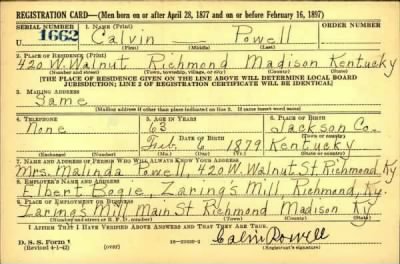 REGISTRATION CARD—(Men born on or after April 28, 1877 and on or before February 16, 1897)
SERIAL NUMBER 1. NAME (Print) ORDER NUMBER
U 1662 Calvin — Powell
(First) (Middle) (Last)
2. PLACE OF RESIDENCE (Print)
420 W. Walnut Richmond Madison Kentucky
(Number and street) (Town, township, village, or city) (County) (State)
[THE PLACE OF RESIDENCE GIVEN ON THE LINE ABOVE WILL DETERMINE LOCAL BOARD
JURISDICTION; LINE 2 OF REGISTRATION CERTIFICATE WILL BE IDENTICAL]
3. MAILING ADDRESS
Same
[Mailing address if other than place indicated on line 2. If same insert word same]
4. TELEPHONE 5. AGE IN YEARS 6. PLACE OF BIRTH
None 63 Jackson Co.
DATE OF BIRTH
Feb. 6 1879 Kentucky
(Exchange) (Number) (Mo.) (Day) (Yr.) (State or country)
7. NAME AND ADDRESS OF PERSON WHO WILL ALWAYS KNOW YOUR ADDRESS
Mrs. Malinda Powell, 420 W. Walnut St Richmond Ky
8. EMPLOYER'S NAME AND ADDRESS
Elbert Bogie, Zaring's Mill, Richmond, Ky.
9. PLACE OF EMPLOYMENT OR BUSINESS
Zaring's Mill Main St Richmond Madison Ky
(Number and street or R. F. D. number) (Town) (County) (State)
I AFFIRM THAT I HAVE VERIFIED ABOVE ANSWERS AND THAT THEY ARE TRUE.
D. S. S. Form 1
(Revised 4-1-42) (over) Calvin Powell
(Registrant's signature)